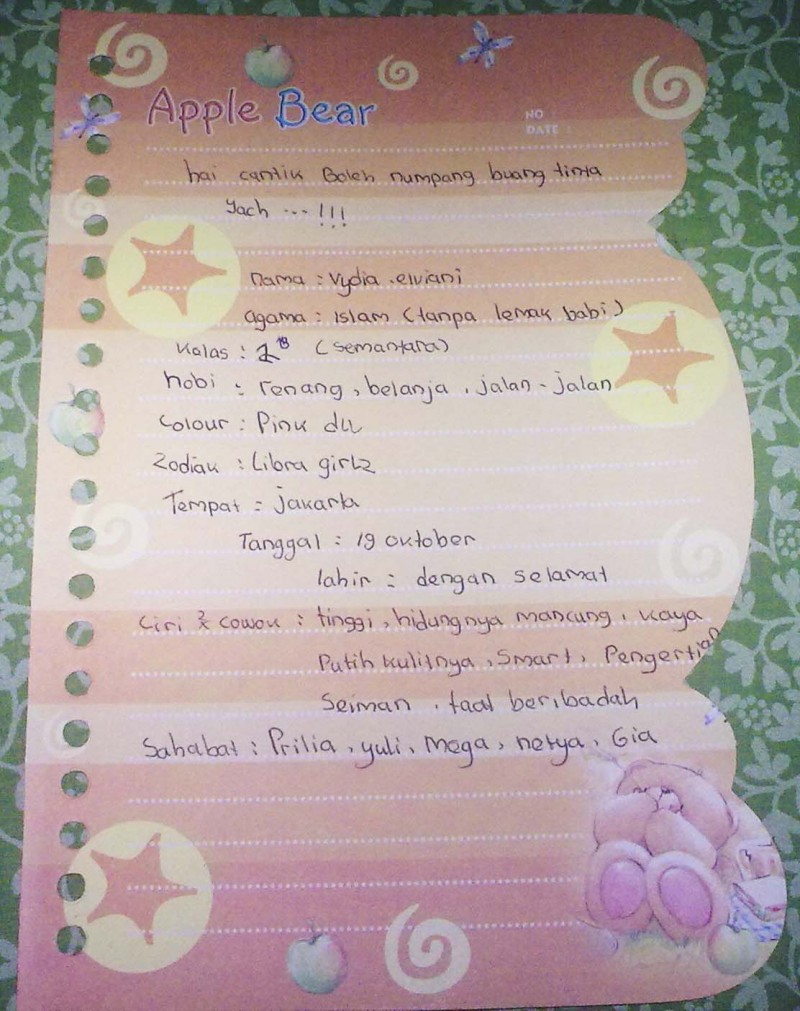 Apple Bear
NO
DATE :
hai cantik Boleh numpang buang tinta
Yach ... !!!
nama : Vydia .elviani
agama : Islam (tanpa lemak babi)
Kelas : 2 B (Sementara)
hobi : renang, belanja, jalan - jalan
Colour : Pink dll
Zodiak : Libra girlz
Tempat : jakarta
Tanggal : 19 oktober
lahir : dengan selamat
Ciri 2x cowok : tinggi, hidungnya mancung, kaya
Putih kulitnya, Smart, Pengertian
Seiman, taat beribadah
Sahabat : Prilia, yuli, Mega, netya, Gia